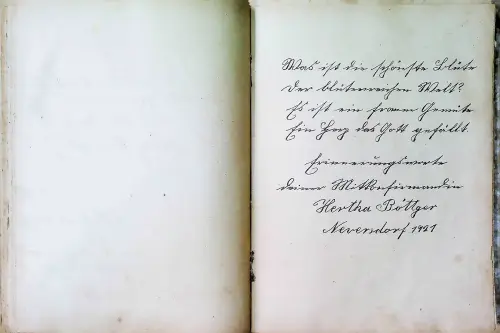 Was ist die schönste Blüte
Der blütenreichen Welt?
Es ist ein from̅es Gemüte
Ein Herz das Gott gefällt.
Erinnerungsworte
deiner Mitkonfirmandin
Hertha Böttger
Neversdorf 1921